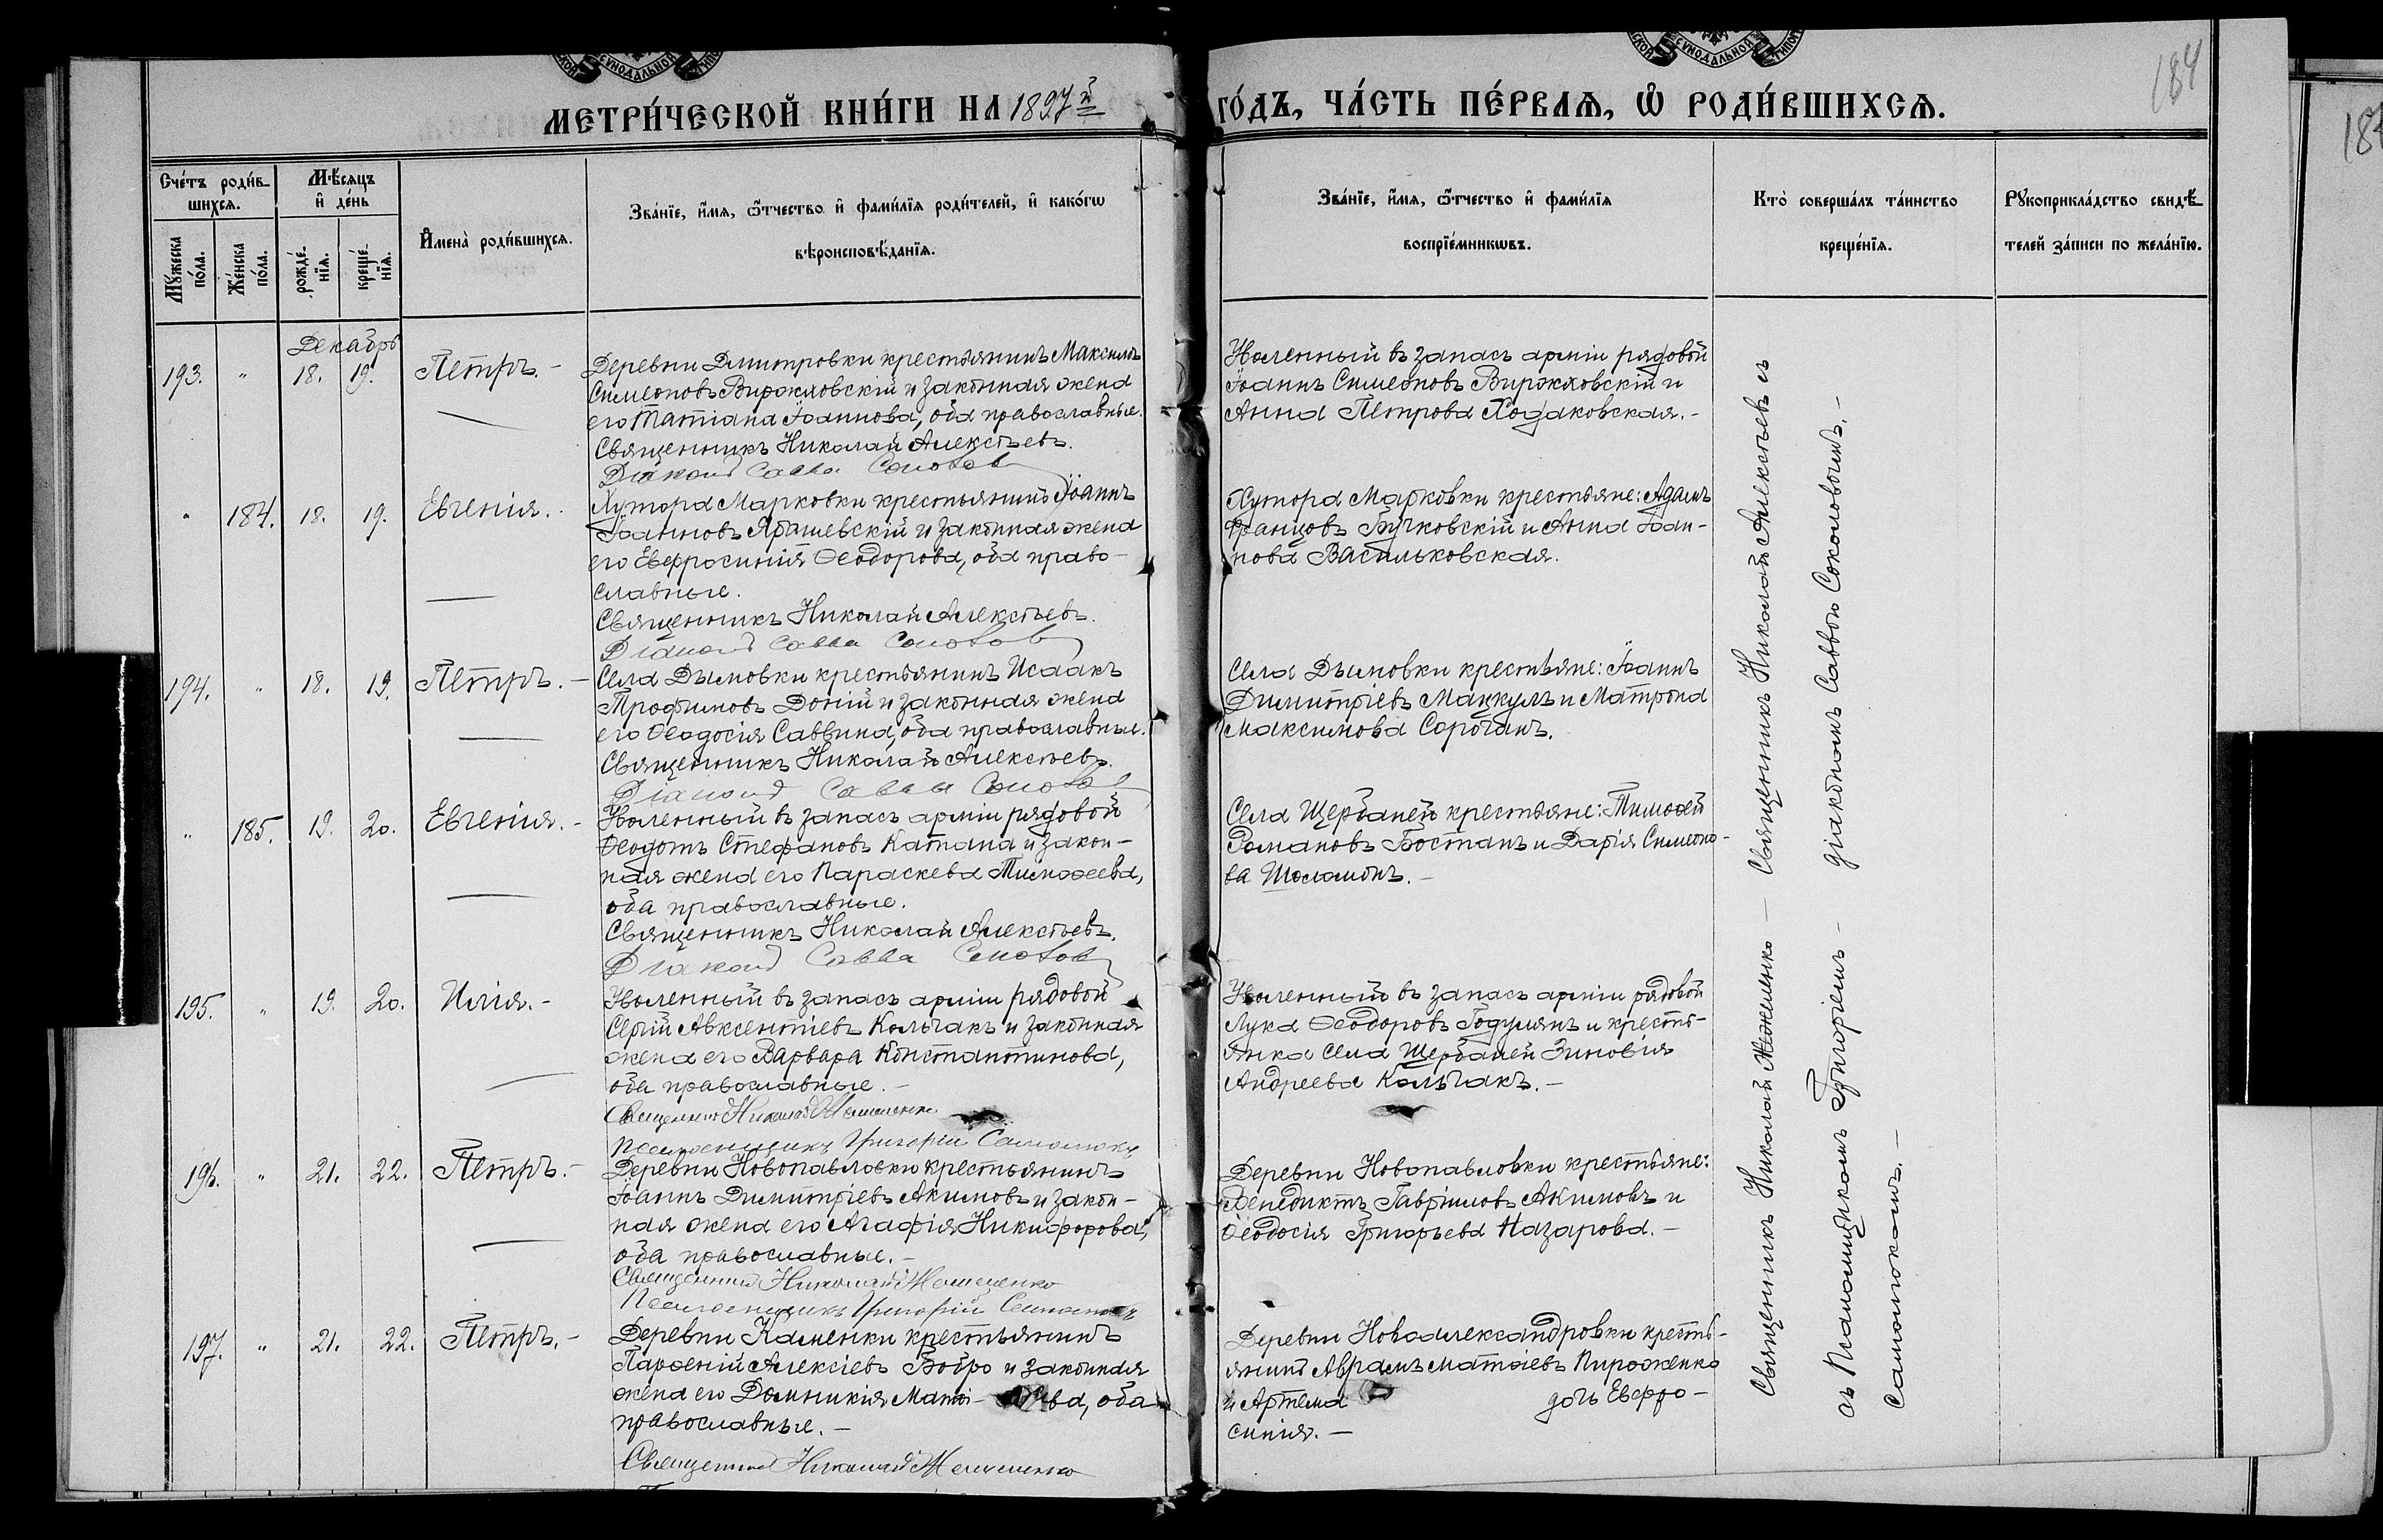 СУНОДАЛЬНОЙ
СУНОДАЛЬНОЙ
184
МЕТРИ́ЧЕСКОЙ КНИ́ГИ НА 1897й
ГО́ДЪ, ЧА́СТЬ ПЕ́РВАѦ, Ѡ РОДИ́ВШИХСѦ.
Сче́тъ роди́в-
шихсѧ.
Мѣ́сѧцъ
и де́нь
Мꙋ́жеска
по́ла.
Же́нска
по́ла.
рожде́-
нїѧ.
креще́-
нїѧ.
Имена̀ роди́вшихсѧ.
Зва́нїе, и́мѧ, ѻ́тчество и фами́лїѧ роди́телей, и како́гѡ
вѣроисповѣ́данїѧ.
Зва́нїе, и́мѧ, ѻ́тчество и фами́лїѧ
воспрїе́мникѡвъ.
Кто̀ соверша́лъ та́инство
креще́нїѧ.
Рꙋкоприкла́дство свидѣ́-
телей за́писи по жела́нїю.
Декабрь
193. " 18. 19. Петръ. -
Деревни Дмитровки крестьянинъ Максимъ
Симеоновъ Виржиковскій и законная жена
его Татіана Іоаннова, оба православные.
Священникъ Николай Алексѣевъ.
Діаконъ Савва Соколовъ
Уволенный въ запасъ арміи рядовой
Іоаннъ Симеоновъ Виржиковскій и
Анна Петрова Ходаковская. -
" 184. 18. 19. Евгенія.
Хутора Марковки крестьянинъ Іоаннъ
Іоанновъ Ярашевскій и законная жена
его Евфросинія Ѳеодорова, оба право-
славные.
Священникъ Николай Алексѣевъ.
Діаконъ Савва Соколовъ
Хутора Марковки крестьяне: Адамъ
Францовъ Бучковскій и Анна Іоан-
нова Васильковская.
194. " 18. 19. Петръ. -
Села Дымовки крестьянинъ Исаакъ
Трофимовъ Доній и законная жена
его Ѳеодосія Саввина, оба православные.
Священникъ Николай Алексѣевъ.
Діаконъ Савва Соколовъ
Села Дымовки крестьяне: Іоаннъ
Димитріевъ Манкулъ и Матрона
Максимова Сорочанъ.
" 185. 19. 20. Евгенія. -
Уволенный въ запасъ арміи рядовой
Ѳеодотъ Стефановъ Катана и закон-
ная жена его Параскева Тимоѳеева,
оба православные.
Священникъ Николай Алексѣевъ.
Діаконъ Савва Соколовъ
Села Щербаней крестьяне: Тимоѳей
Романовъ Бостанъ и Дарія Симеоно-
ва Шоломонъ. -
195. " 19. 20. Илія. -
Уволенный въ запасъ арміи рядовой
Сергій Авксентіевъ Кольчакъ и законная
жена его Варвара Константинова,
оба православные. -
Священникъ Николай
Псаломщикъ Григорій Самотокъ
Уволенный въ запасъ арміи рядовой
Лука Ѳеодоровъ Годулянъ и кресть-
янка села Щербаней Зиновія
Андреева Кольчакъ. -
196. " 21. 22. Петръ. -
Деревни Новопавловки крестьянинъ
Іоаннъ Димитріевъ Акимовъ и закон-
ная жена его Агафія Никифорова,
оба православные. -
Священникъ Николай
Псаломщикъ Григорій Самотокъ
Деревни Новопавловки крестьяне:
Венедиктъ Гавріиловъ Акимовъ и
Ѳеодосія Григорьева Назарова. -
197. " 21. 22. Петръ. -
Деревни Каменки крестьянинъ
Парѳеній Алексіевъ Бойро и законная
жена его Домникія Матѳі- ва, оба
православные. -
Священникъ Николай
Деревни Новоалександровки кресть-
янинъ Аврамъ Матѳіевъ Пироженко
и Артема дочь Евфро-
синія. -
Священникъ Николай - Священникъ Николай Алексѣевъ съ
съ Псаломщикомъ Григоріемъ - діакономъ Саввою Соколовымъ. -
Самотокомъ. -